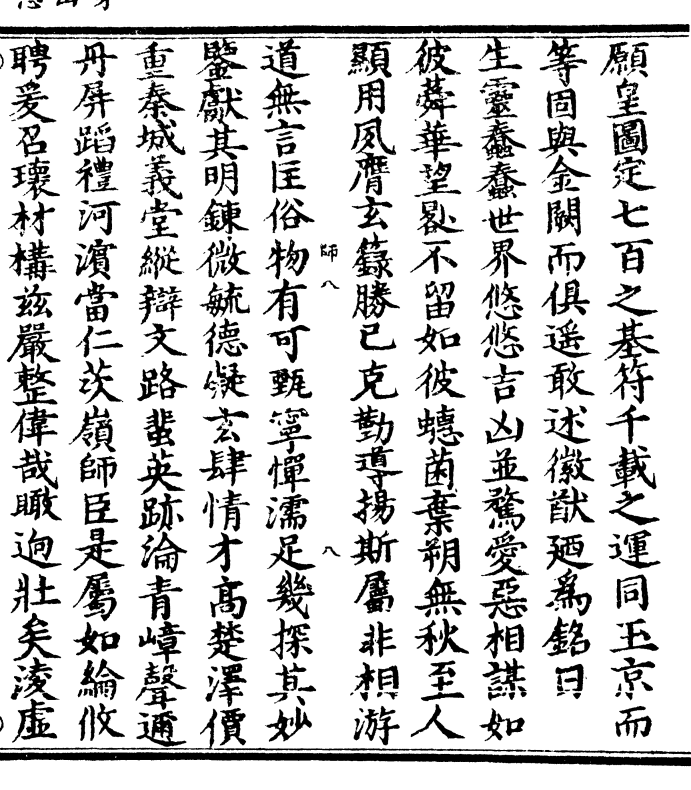 願皇圖定七百之基符千載之運同玉京而
等固與金闕而俱遥敢述徽猷廼爲銘曰
生靈蠢蠢世界悠悠吉凶並騖愛惡相謀如
彼蕣華望晷不留如彼蟪菌棄朔無秋至人
顯用夙膺玄籙勝已克勤導揚斯屬非相游
道無言匡俗物有可甄寧憚濡足幾探其妙
鑒獻其明錬微毓德凝玄肆情才高楚澤價
重秦城義堂縱辯文路蜚英跡淪青嶂聲邇
丹屏蹈禮河濱當仁茨嶺師臣是屬如綸攸
聘爰召瓌材構兹嚴整偉哉瞰迥壯矣淩虛
師八
八